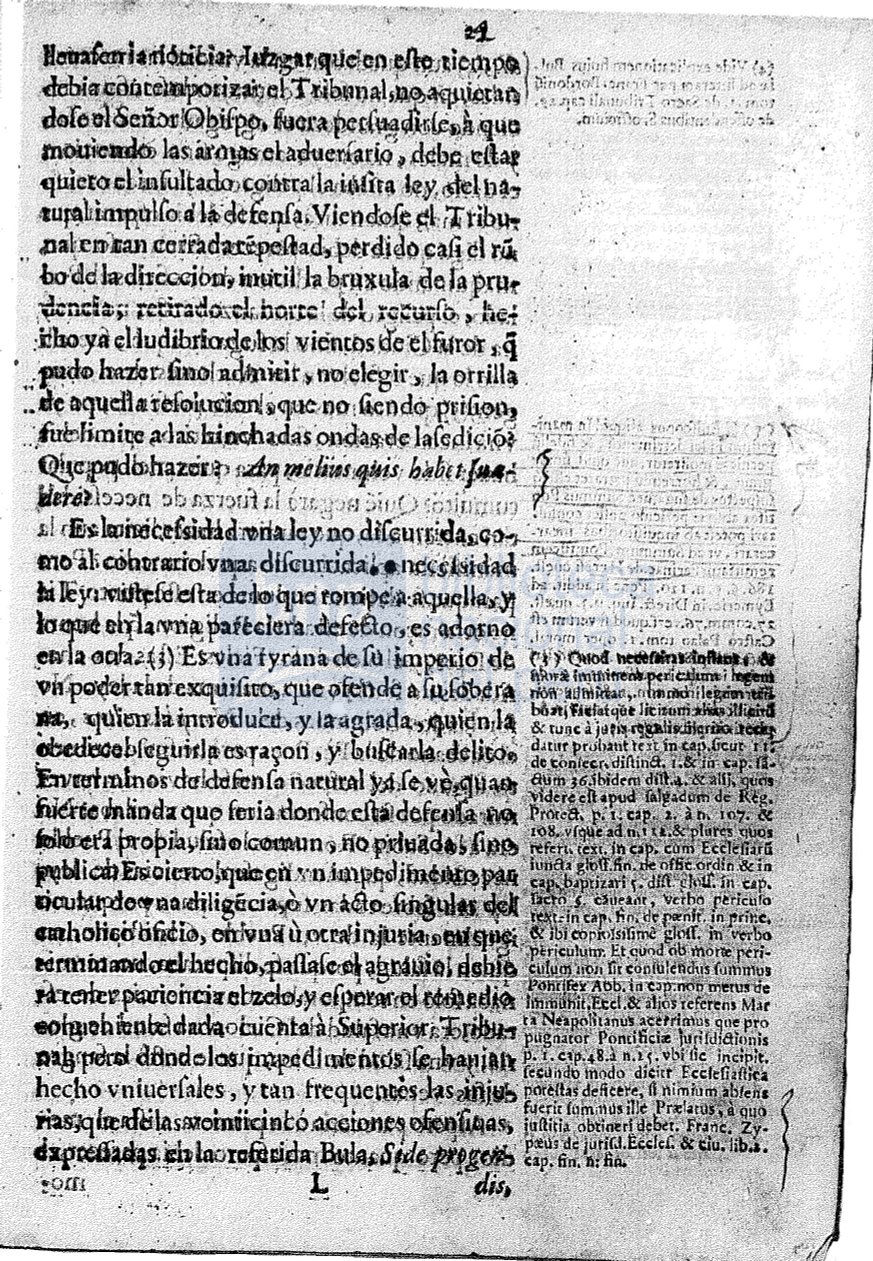 21
lleuasen la noticia: Iuzgar que en este tiempo
debia contemporizar el Tribunal, no aquietan
dose el Señor Obispo, fuera persuadirse, à que
mouiendo las armas el aduersario, debe estar
quieto el insultado contra la insita ley del na-
tural impulso a la defensa. Viendose el Tribu-
nal en tan cerrada tẽpestad, perdido casi el rũ
bo de la direccion, inutil la bruxula de la pru-
dencia, retirado el norte del recurso, he-
cho ya el ludibrio de los vientos de el furor, q̃
pudo hazer sino admitir, no elegir, la orrilla
de aquella resolucion, que no siendo prision,
fue limite a las hinchadas ondas de la sedició?
Que pudo hazer? An melius quis habet sua-
dere?
Es la necessidad vna ley no discurrida, co-
mo al contrario vna discurrida necessidad
la ley: vistese esta de lo que rompe a aquella, y
lo que en la vna pareciera defecto, es adorno
en la otra. (5) Es vna tyrana de su imperio de
vn poder tan exquisito, que ofende a su sobera
na, quien la introduce, y la agrada, quien la
obedece: seguirla es raçon, y buscarla delito.
En terminos de defensa natural ya se vè, quan
fuerte manda que seria donde esta defensa no
solo era propia, sino comun, no priuada, sino
publica? Es cierto, que en vn impedimento par
ticular de vna diligẽcia, ò vn acto singular del
catholico oficio, en vna ù otra injuria, en que
terminando el hecho, passase el agrauio, debie
ra tener paciencia el zelo, y esperar el remedio
conueniente dada cuenta à Superior Tribu-
nal; pero donde los impedimentos se hauian
hecho vniuersales, y tan frequentes las inju-
rias, que de las veinticinco acciones ofensiuas,
expressadas en la referida Bula, Si de progen-
L dis,
(5) Quod necessitas instans, &
moræ imminens periculum legem
non admittat,
& tunc à juris regulis
datur probant text in cap. sicut 11.
de consecr. distinct. 1. & in cap. sa-
ctum 36. ibidem dist. 4. & alij, quos
videre est apud salgadum de Reg.
Protect. p. 1. cap. 2. à n. 107. &
108. vsque ad n. 112. & plures quos
refert. text. in cap. cum Ecclesiarũ
iuncta gloss. fin. de offic. ordin. & in
cap. baptizari 5. dist. gloss. in cap.
sacro 5. caueant, verbo periculo
text. in cap. fin. de pœnit. in princ.
& ibi copiosisimè gloss. in verbo
periculum. Et quod ob moræ peri-
culum non sit consulendus summus
Pontifex Abb. in cap. non metus de
Immunit. Eccl. & alios referens Mar
ta Neapolitanus acerrimus que pro
pugnator Pontificiæ jurisdictionis
p. 1. cap. 48. à n. 15. vbi sic incipit.
secundo modo dicitr Ecclesiastica
potestas deficere, si nimium absens
fuerit summus ille Prælatus, à quo
justitia obtineri debet. Franc. Zy-
pæus de jurisd. Eccles. & ciu. lib. 2.
cap. fin. n. fin.